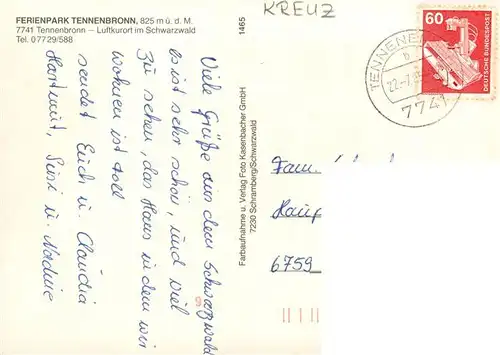 FERIENPARK TENNENBRONN, 825 m ü. d. M.
7741 Tennenbronn – Luftkurort im Schwarzwald
Tel. 0 77 29/588
1465
KREUZ
60
DEUTSCHE BUNDESPOST
TENNENB
22.-7.
7741
Viele Grüße aus dem Schwarzwald
es ist sehr schön, und viel
zu sehen, das Haus in dem wir
wohnen ist toll
sendet Euch u. Claudia
Hartmut, Susi u. Nadine
Farbaufnahme u. Verlag Foto Kasenbacher GmbH
7230 Schramberg/Schwarzwald
Fam.
Haup
6759